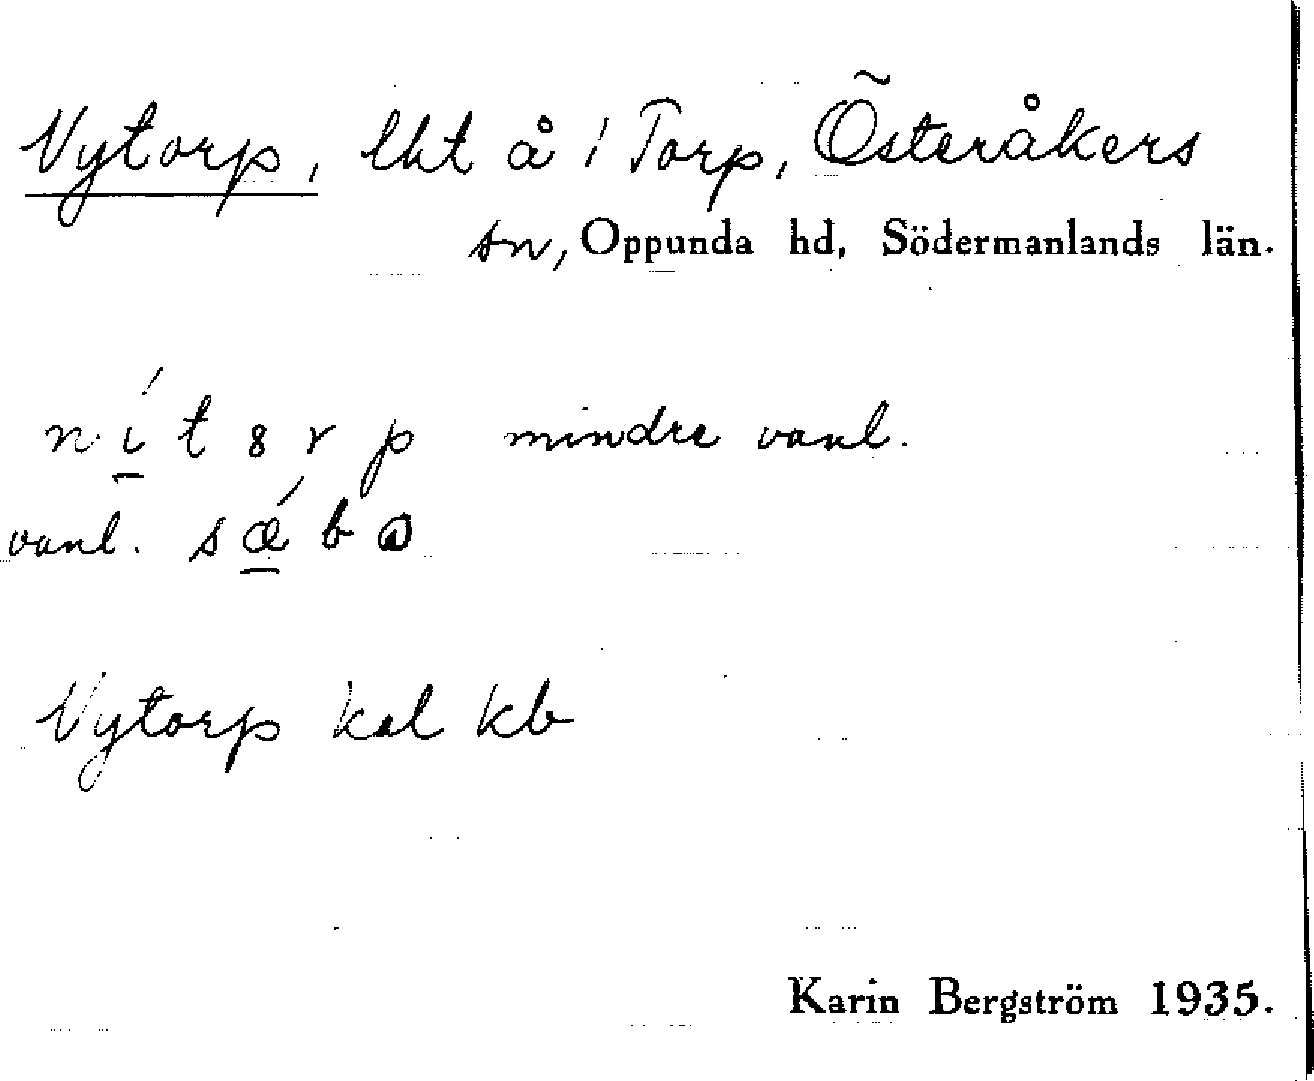 Nytorp, lht å 1 Torp, Österåkers
sn, Oppunda hd, Södermanlands län.
n í̱ t 8 r p mindre vanl.
vanl. s ǽ̱ b
Nytorp kal kb
Karin Bergström 1935.